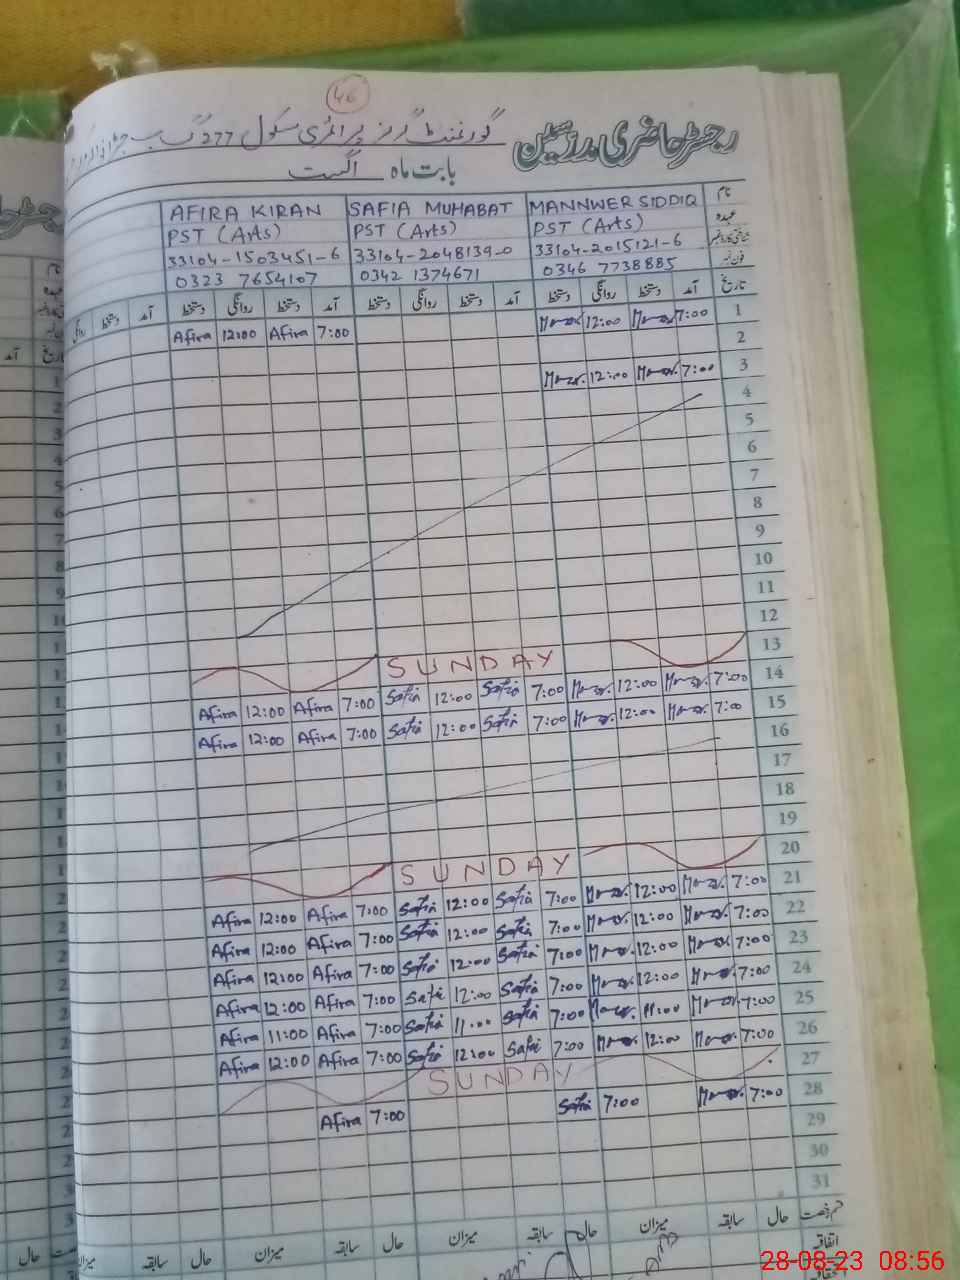 46
رجسٹر حاضری مدرسین گورنمنٹ گرلز پرائمری سکول 277 گ ب
بابت ماہ اگست
نام MANNWER SIDDIQ SAFIA MUHABAT AFIRA KIRAN
عہدہ PST (Arts) PST (Arts) PST (Arts)
شناختی کارڈ نمبر 33104-2015121-6 33104-2048139-0 33104-1503451-6
فون نمبر 0346 7738885 0342 1374671 0323 7654107
تاریخ آمد دستخط روانگی دستخط آمد دستخط روانگی دستخط آمد دستخط روانگی دستخط آمد دستخط روانگی
1 7:00 12:00 7:00 Afira 12:00 Afira
2
3 7:00 12:00
4
5
6
7
8
9
10
11
12
13 SUNDAY
14 7:00 12:00 7:00 Safia 12:00 Safia 7:00 Afira 12:00 Afira
15 7:00 12:00 7:00 Safia 12:00 Safia 7:00 Afira 12:00 Afira
16
17
18
19
20 SUNDAY
21 7:00 12:00 7:00 Safia 12:00 Safia 7:00 Afira 12:00 Afira
22 7:00 12:00 7:00 Safia 12:00 Safia 7:00 Afira 12:00 Afira
23 7:00 12:00 7:00 Safia 12:00 Safia 7:00 Afira 12:00 Afira
24 7:00 12:00 7:00 Safia 12:00 Safia 7:00 Afira 12:00 Afira
25 7:00 11:00 7:00 Safia 11:00 Safia 7:00 Afira 11:00 Afira
26 7:00 12:00 7:00 Safia 12:00 Safia 7:00 Afira 12:00 Afira
27 SUNDAY
28 7:00 7:00 Safia 7:00 Afira
29
30
31
قسم رخصت حال سابقہ میزان حال سابقہ میزان حال سابقہ میزان حال سابقہ
اتفاقیہ
28-08-23 08:56